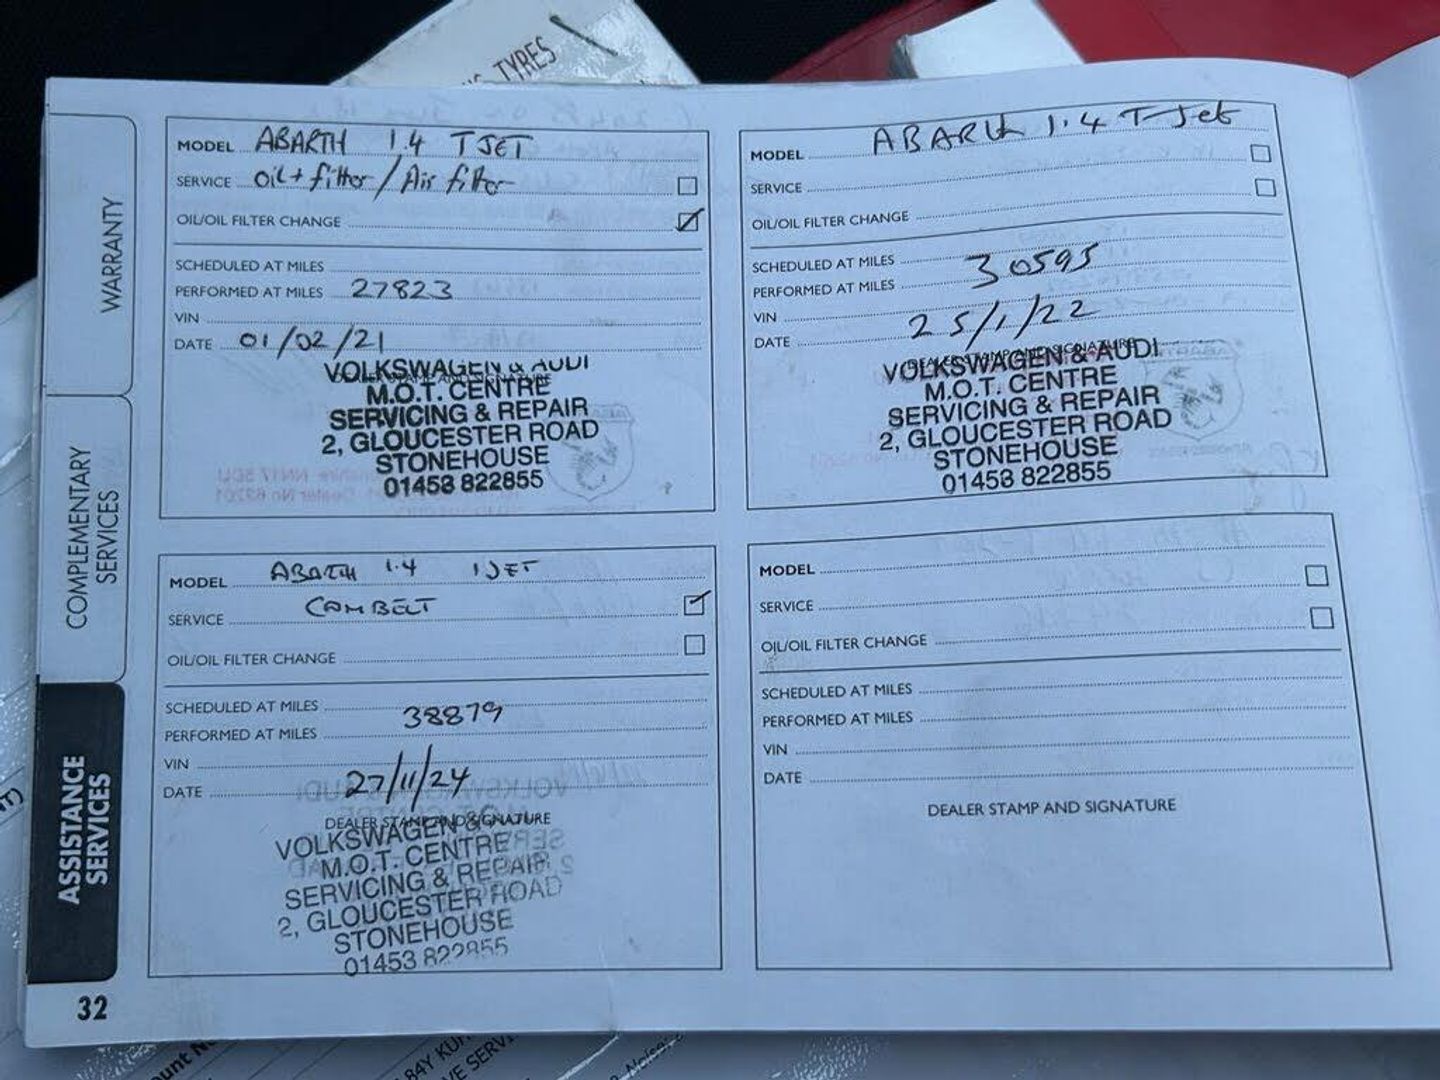 TYRES
WARRANTY
COMPLEMENTARY
SERVICES
ASSISTANCE
SERVICES
32
MODEL ABARTH 1.4 TJET
SERVICE Oil + filter / Air filter
OIL/OIL FILTER CHANGE
SCHEDULED AT MILES
PERFORMED AT MILES 27823
VIN
DATE 01/02/21
VOLKSWAGEN & AUDI
M.O.T. CENTRE
SERVICING & REPAIR
2, GLOUCESTER ROAD
STONEHOUSE
01453 822855
MODEL ABARTH 1.4 T-Jet
SERVICE
OIL/OIL FILTER CHANGE
SCHEDULED AT MILES
PERFORMED AT MILES 30595
VIN
DATE 25/1/22
DEALER STAMP AND SIGNATURE
VOLKSWAGEN & AUDI
M.O.T. CENTRE
SERVICING & REPAIR
2, GLOUCESTER ROAD
STONEHOUSE
01453 822855
MODEL ABARTH 1.4 TJET
SERVICE CAMBELT
OIL/OIL FILTER CHANGE
SCHEDULED AT MILES
PERFORMED AT MILES 38879
VIN
DATE 27/11/24
DEALER STAMP AND SIGNATURE
VOLKSWAGEN & AUDI
M.O.T. CENTRE
SERVICING & REPAIR
2, GLOUCESTER ROAD
STONEHOUSE
01453 822855
MODEL
SERVICE
OIL/OIL FILTER CHANGE
SCHEDULED AT MILES
PERFORMED AT MILES
VIN
DATE
DEALER STAMP AND SIGNATURE